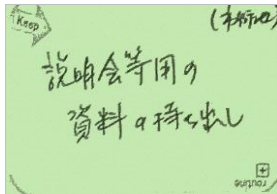 Keep
説明会等用の
資料の持ち出し
routine